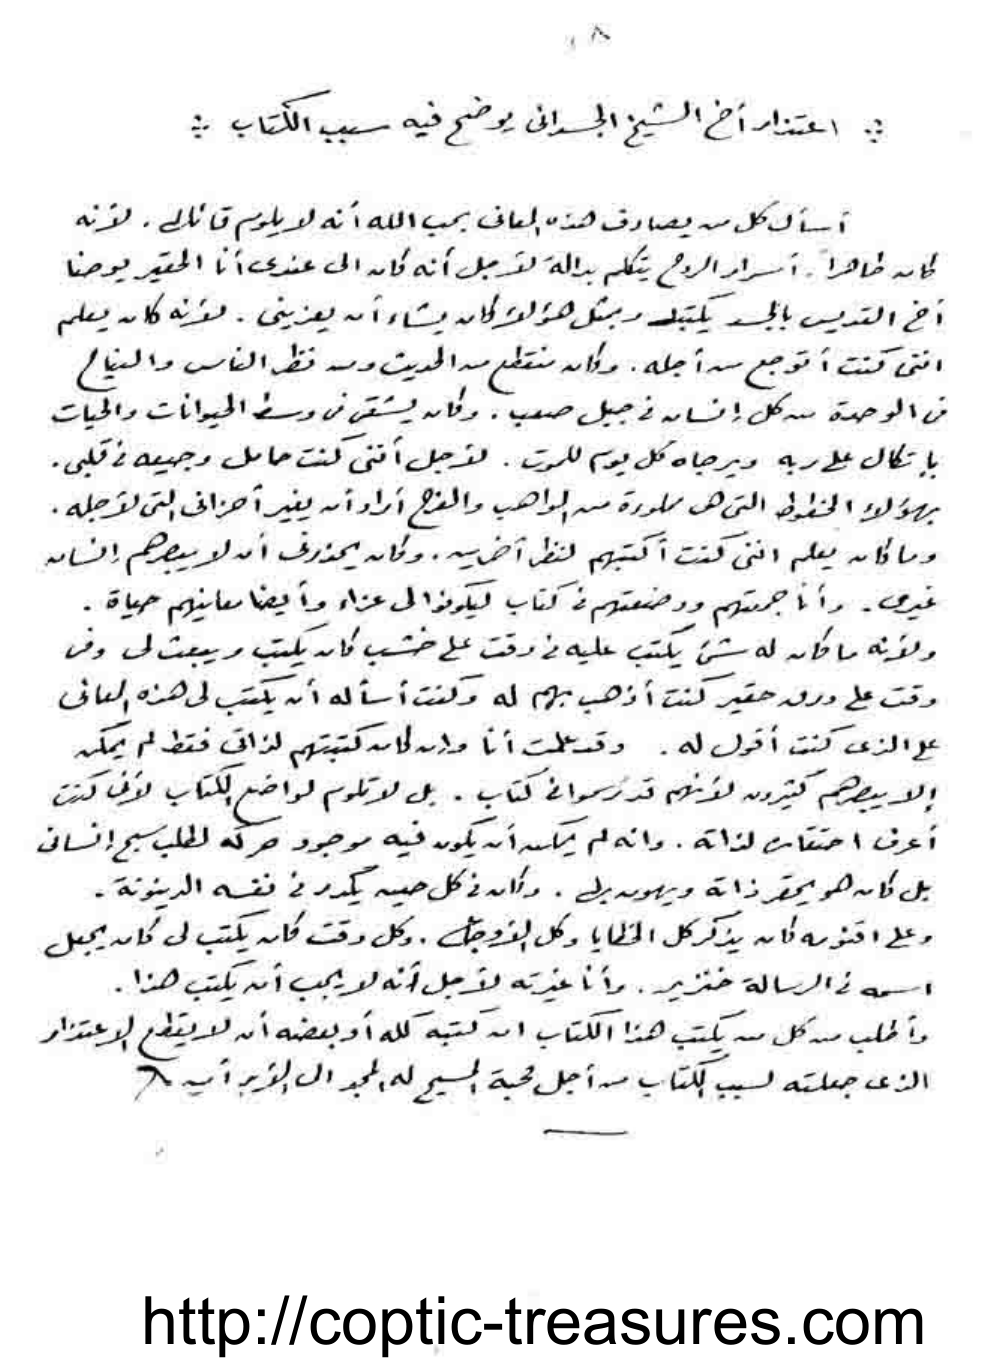 ٨
܀ اعتذار أخ الشيخ الجسدانى يوضح فيه سبب الكتاب ܀
أسأل كل من يصادف هذه المعانى بحب الله أنه لا يلوم قائلها . لأنه
كان ظاهراً . أسرار الروح يتكلم بدالة لأجل أنه كان الى عندى أنا الحقير يوحنا
أخ القديس بالجسد يكتب وبمثل هؤلاء كان يشاء أن يعزينى . لأنه كان يعلم
اننى كنت أتوجع من أجله . وكان منقطع من الحديث ومن نظر الناس والنياح
فى الوحدة من كل إنسان فى جبل صعب . وكان يشقى فى وسط الحيوانات والحيات
بإتكال على ربه ويرجاه كل يوم للموت . لأجل أننى كنت حامل وجيعه فى قلبى .
بهؤلاء الخطوط التى هى مملوءة من المواهب والفرح أراد أن يغير أحزانى التى لأجله .
وما كان يعلم اننى كنت أكتبهم لنظر أخرين . وكان يحذرنى أن لا يبصرهم إنسان
غيرى . وأنا جمعتهم ووضعتهم فى كتاب ليكونوا لى عزاء وأيضا معاينهم حياة .
ولأنه ما كان له شئ يكتب عليه فى وقت على خشب كان يكتب ويبعث لى وفى
وقت على ورق حقير كنت أذهب بهم له وكنت أسأله أن يكتب لى هذه المعانى
على الذى كنت أقول له . وقد علمت أنا وان كان كتبتهم لذاتى فقط لم يمكن
إلا يبصرهم كثيرون لأنهم قد رسموا فى كتاب . بل لا تلوم لواضع الكتاب لأنى كنت
أعرف احتقاره لذاته . وانه لم يمكن أن يكون فيه موجود حركة لطلب سبح إنسانى
بل كان هو يحقر ذاته ويهون بها . وكان فى كل حين يكدر فى نفسه الدينونة .
وعلى اقنومه كان يذكر كل الخطايا وكل الأوجاع . وكل وقت كان يكتب لى كان يجعل
اسمه فى الرسالة خنزير . وأنا غيرته لأجل أنه لا يجب أن يكتب هذا .
وأطلب من كل من يكتب هذا الكتاب ان كتبه كله أو بعضه أن لا يقطع الاعتذار
الذى جعلته لسبب الكتاب من أجل محبة المسيح له المجد الى الأبد أمين
http://coptic-treasures.com